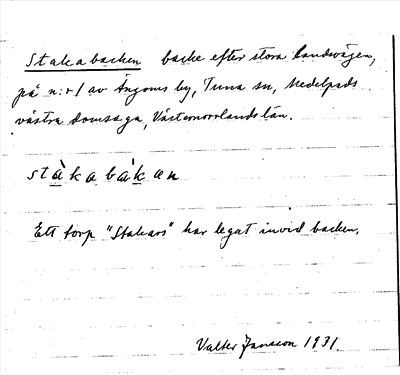 Stakabacken backe efter stora landsvägen,
på n:r 1 av Ängoms by, Tuna sn, Medelpads
västra domsaga, Västernorrlands län.
stàkabàkan
Ett torp "Stakars" har legat invid backen.
Valter Jansson 1931.